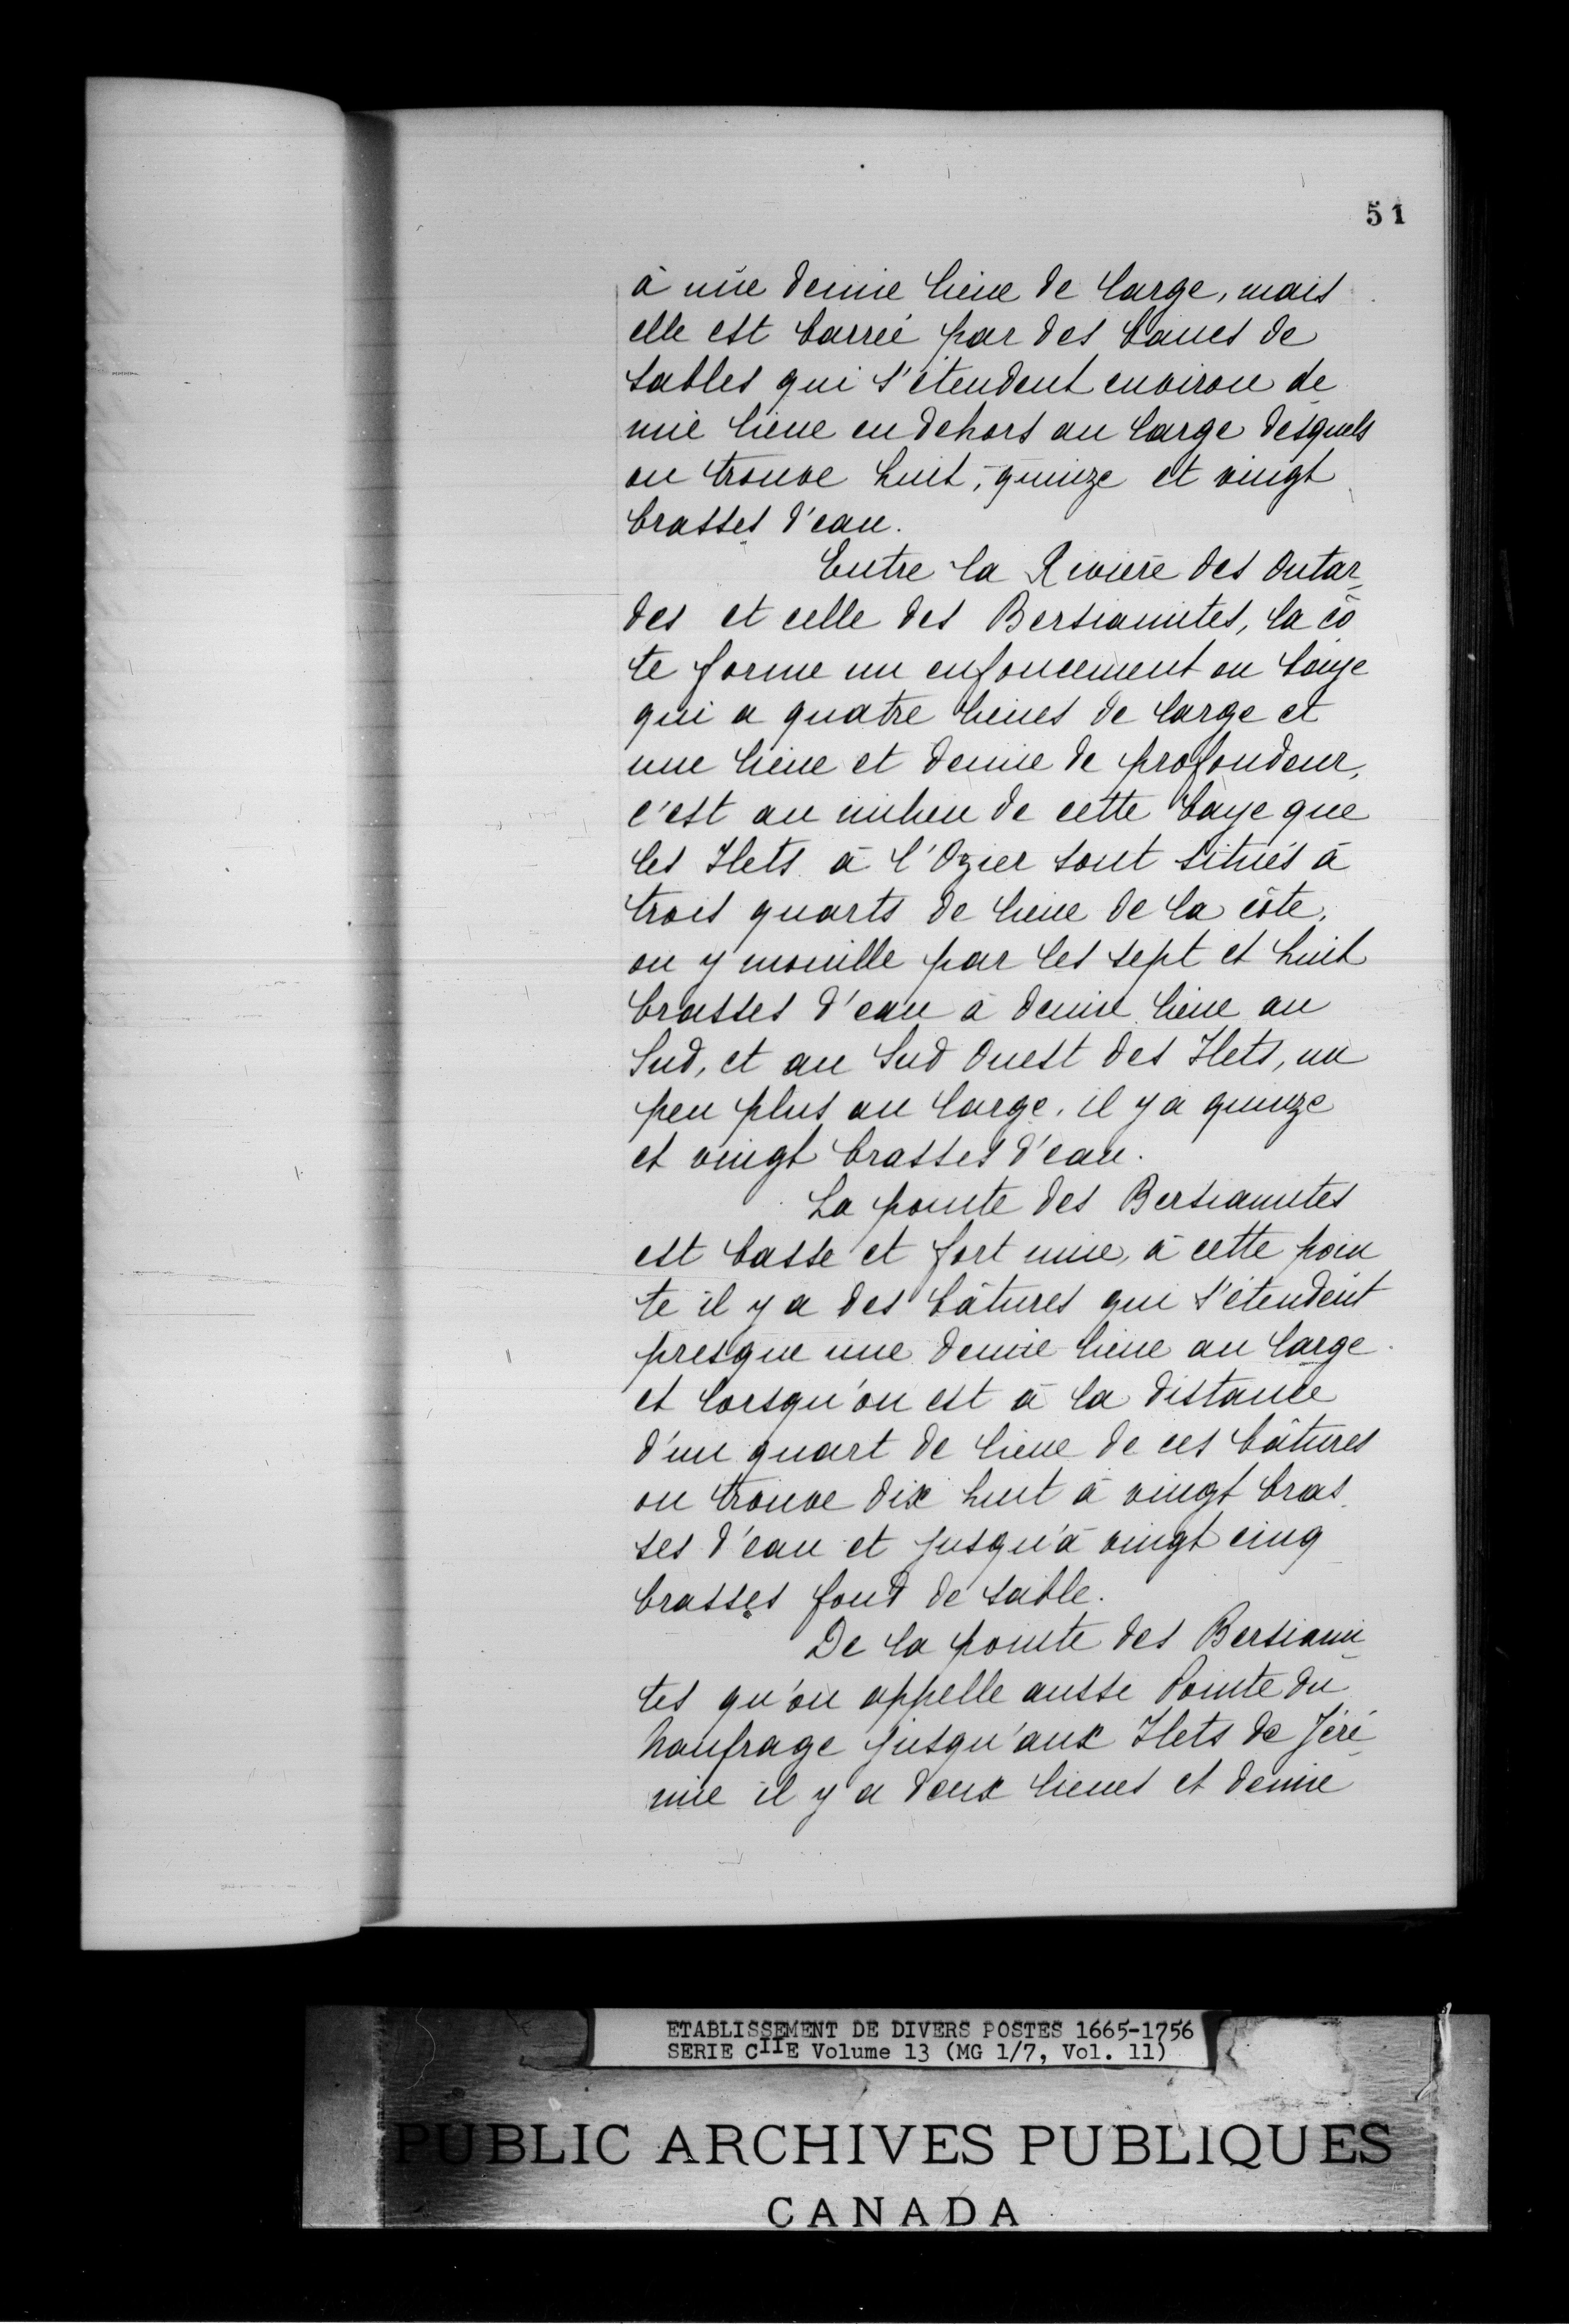 51
à une demie lieue de large, mais
elle est barrée par des bancs de
sables qui s'étendent environ de
mie lieue en dehors au large desquels
on trouve huit, quinze et vingt
brasses d'eau.
Entre la Rivière des Outar
des et celle des Bersiamites, la cô
te forme un enfoncement ou baye
qui a quatre lieues de large et
une lieue et demie de profondeur,
c'est au milieu de cette baye que
les Ilets à l'Ozier sont situés à
trois quarts de lieue de la côte,
on y mouille par les sept et huit
brasses d'eau à demie lieue au
Sud, et au Sud Ouest des Ilets, un
peu plus au large, il y a quinze
et vingt brasses d'eau.
La pointe des Bersiamites
est basse et fort unie, à cette poin
te il y a des bâtures qui s'étendent
presque une demie lieue au large
et lorsqu'on est à la distance
d'un quart de lieue de ces bâtures
on trouve dix huit à vingt bras
ses d'eau et jusqu'à vingt cinq
brasses fond de sable.
De la pointe des Bersiami
tes qu'on appelle aussi Pointe du
Naufrage jusqu'aux Ilets de Jéré
mie il y a deux lieues et demie
ETABLISSEMENT DE DIVERS POSTES 1665-1756
SERIE CIIE Volume 13 (MG 1/7, Vol. 11)
PUBLIC ARCHIVES PUBLIQUES
CANADA